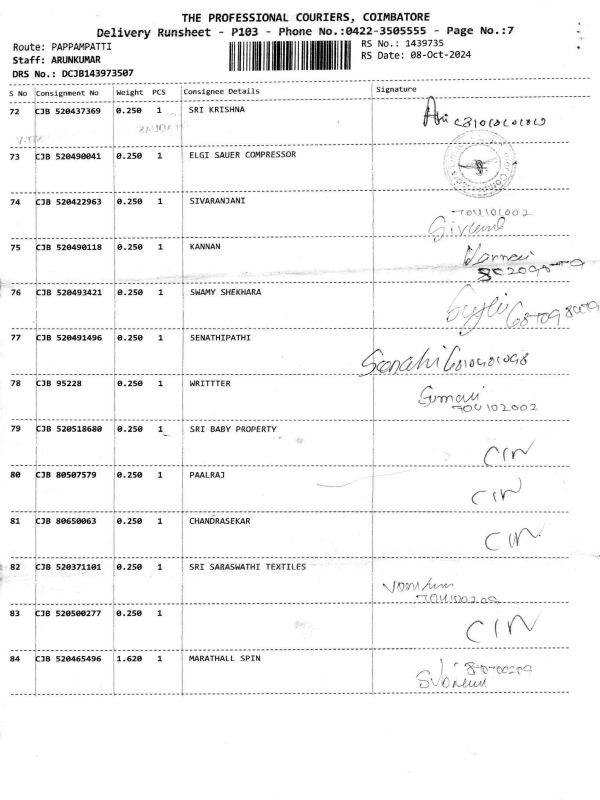 THE PROFESSIONAL COURIERS, COIMBATORE
Delivery Runsheet - P103 - Phone No.:0422-3505555 - Page No.:7
Route: PAPPAMPATTI
Staff: ARUNKUMAR
DRS No.: DCJB143973507
RS No.: 1439735
RS Date: 08-Oct-2024
S No Consignment No Weight PCS Consignee Details Signature
72 CJB 520437369 0.250 1 SRI KRISHNA
73 CJB 520490041 0.250 1 ELGI SAUER COMPRESSOR
74 CJB 520422963 0.250 1 SIVARANJANI
75 CJB 520490118 0.250 1 KANNAN
76 CJB 520493421 0.250 1 SWAMY SHEKHARA
77 CJB 520491496 0.250 1 SENATHIPATHI
78 CJB 95228 0.250 1 WRITTTER
79 CJB 520518680 0.250 1 SRI BABY PROPERTY CIN
80 CJB 80507579 0.250 1 PAALRAJ CIN
81 CJB 80650063 0.250 1 CHANDRASEKAR CIN
82 CJB 520371101 0.250 1 SRI SARASWATHI TEXTILES
83 CJB 520500277 0.250 1 CIN
84 CJB 520465496 1.620 1 MARATHALL SPIN